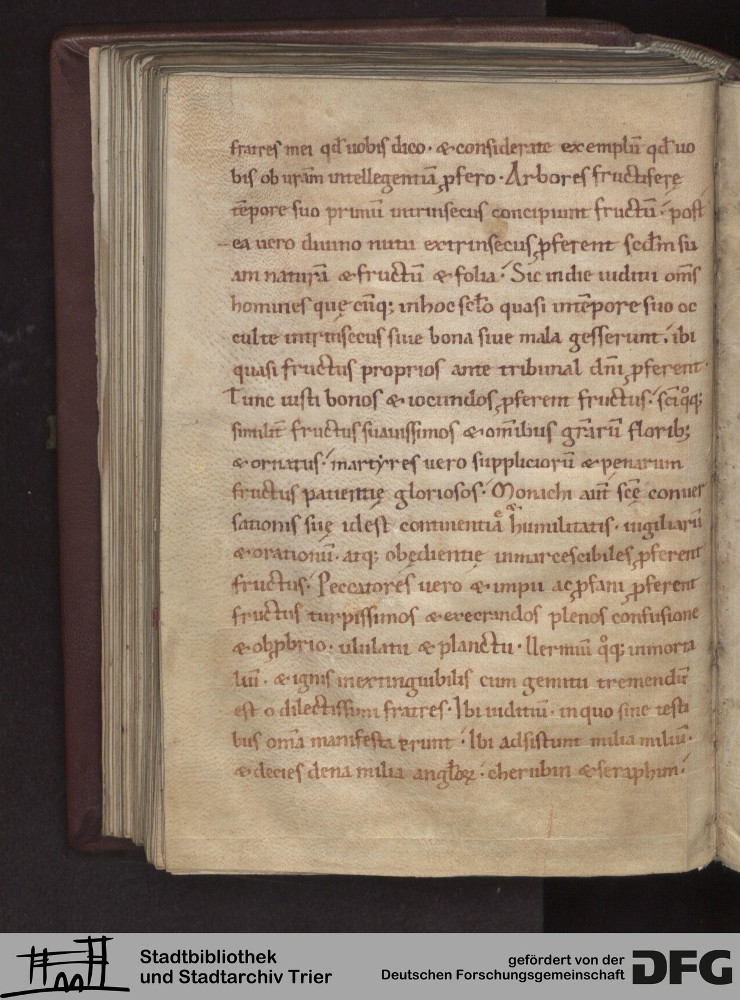 fratres mei qd̄ uobis dico · & considerate exemplū qd̄ uo
bis ob uram̄ intellegentiā ꝓfero · Arbores fructiferę
tēpore suo primū intrinsecus concipiunt fructū · post
ea uero diuino nutu extrinsecus ꝓferent scdm̄ su
am naturā & fructū & folia · Sic in die iuditii om̄s
homines quę cūq; in hoc sclo̅ quasi in tēpore suo oc
culte intrinsecus siue bona siue mala gesserunt · ibi
quasi fructus proprios ante tribunal dn̄i ꝓferent ·
Tunc iusti bonos & iocundos ꝓferent fructus · sci̅ qͦq;
similit̄ fructus suauissimos & om̄ibus grarū̄ florib;
& ornatus · martyres uero suppliciorū & penarum
fructus patientię gloriosos · Monachi aut̄ scę̄ conuer
sationis suę id est continentiā humilitatis · uigiliarū
& orationū · atq; obędientię inmarcescibiles ꝓferent
fructus · Peccatores uero & impii ac ꝓfani ꝓferent
fructus turpissimos & execrandos plenos confusione
& obꝓbrio · ululatu & planctu · Uermiū qͦq; inmorta
liū · & ignis inextinguibilis cum gemitu tremendū
est o dilectissimi fratres · Ibi iuditiū · in quo sine testi
bus om̄a manifesta erunt · Ibi adsistunt milia miliū ·
& decies dena milia anglo̅ꝝ · cherubin & seraphim ·
Stadtbibliothek
und Stadtarchiv Trier
gefördert von der
Deutschen Forschungsgemeinschaft
DFG